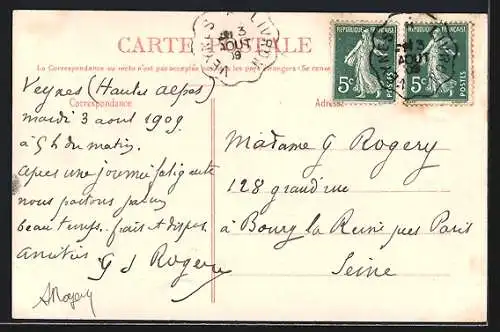 CARTE POSTALE
La Correspondance au recto n'est pas acceptée
Correspondance
Adresse
3
AOUT
09
REPUBLIQUE FRANÇAISE
5c
POSTES
REPUBLIQUE FRANÇAISE
5c
POSTES
3
AOUT
Veynes (Hautes alpes)
mardi 3 aout 1909
à 5h du matin.
apres une journée fatigante
nous partons par un
beau temps. frais et dispos.
amitiés
G d Rogery
ARogery
Madame G Rogery
128 grand'rue
à Bourg la Reine près Paris
Seine